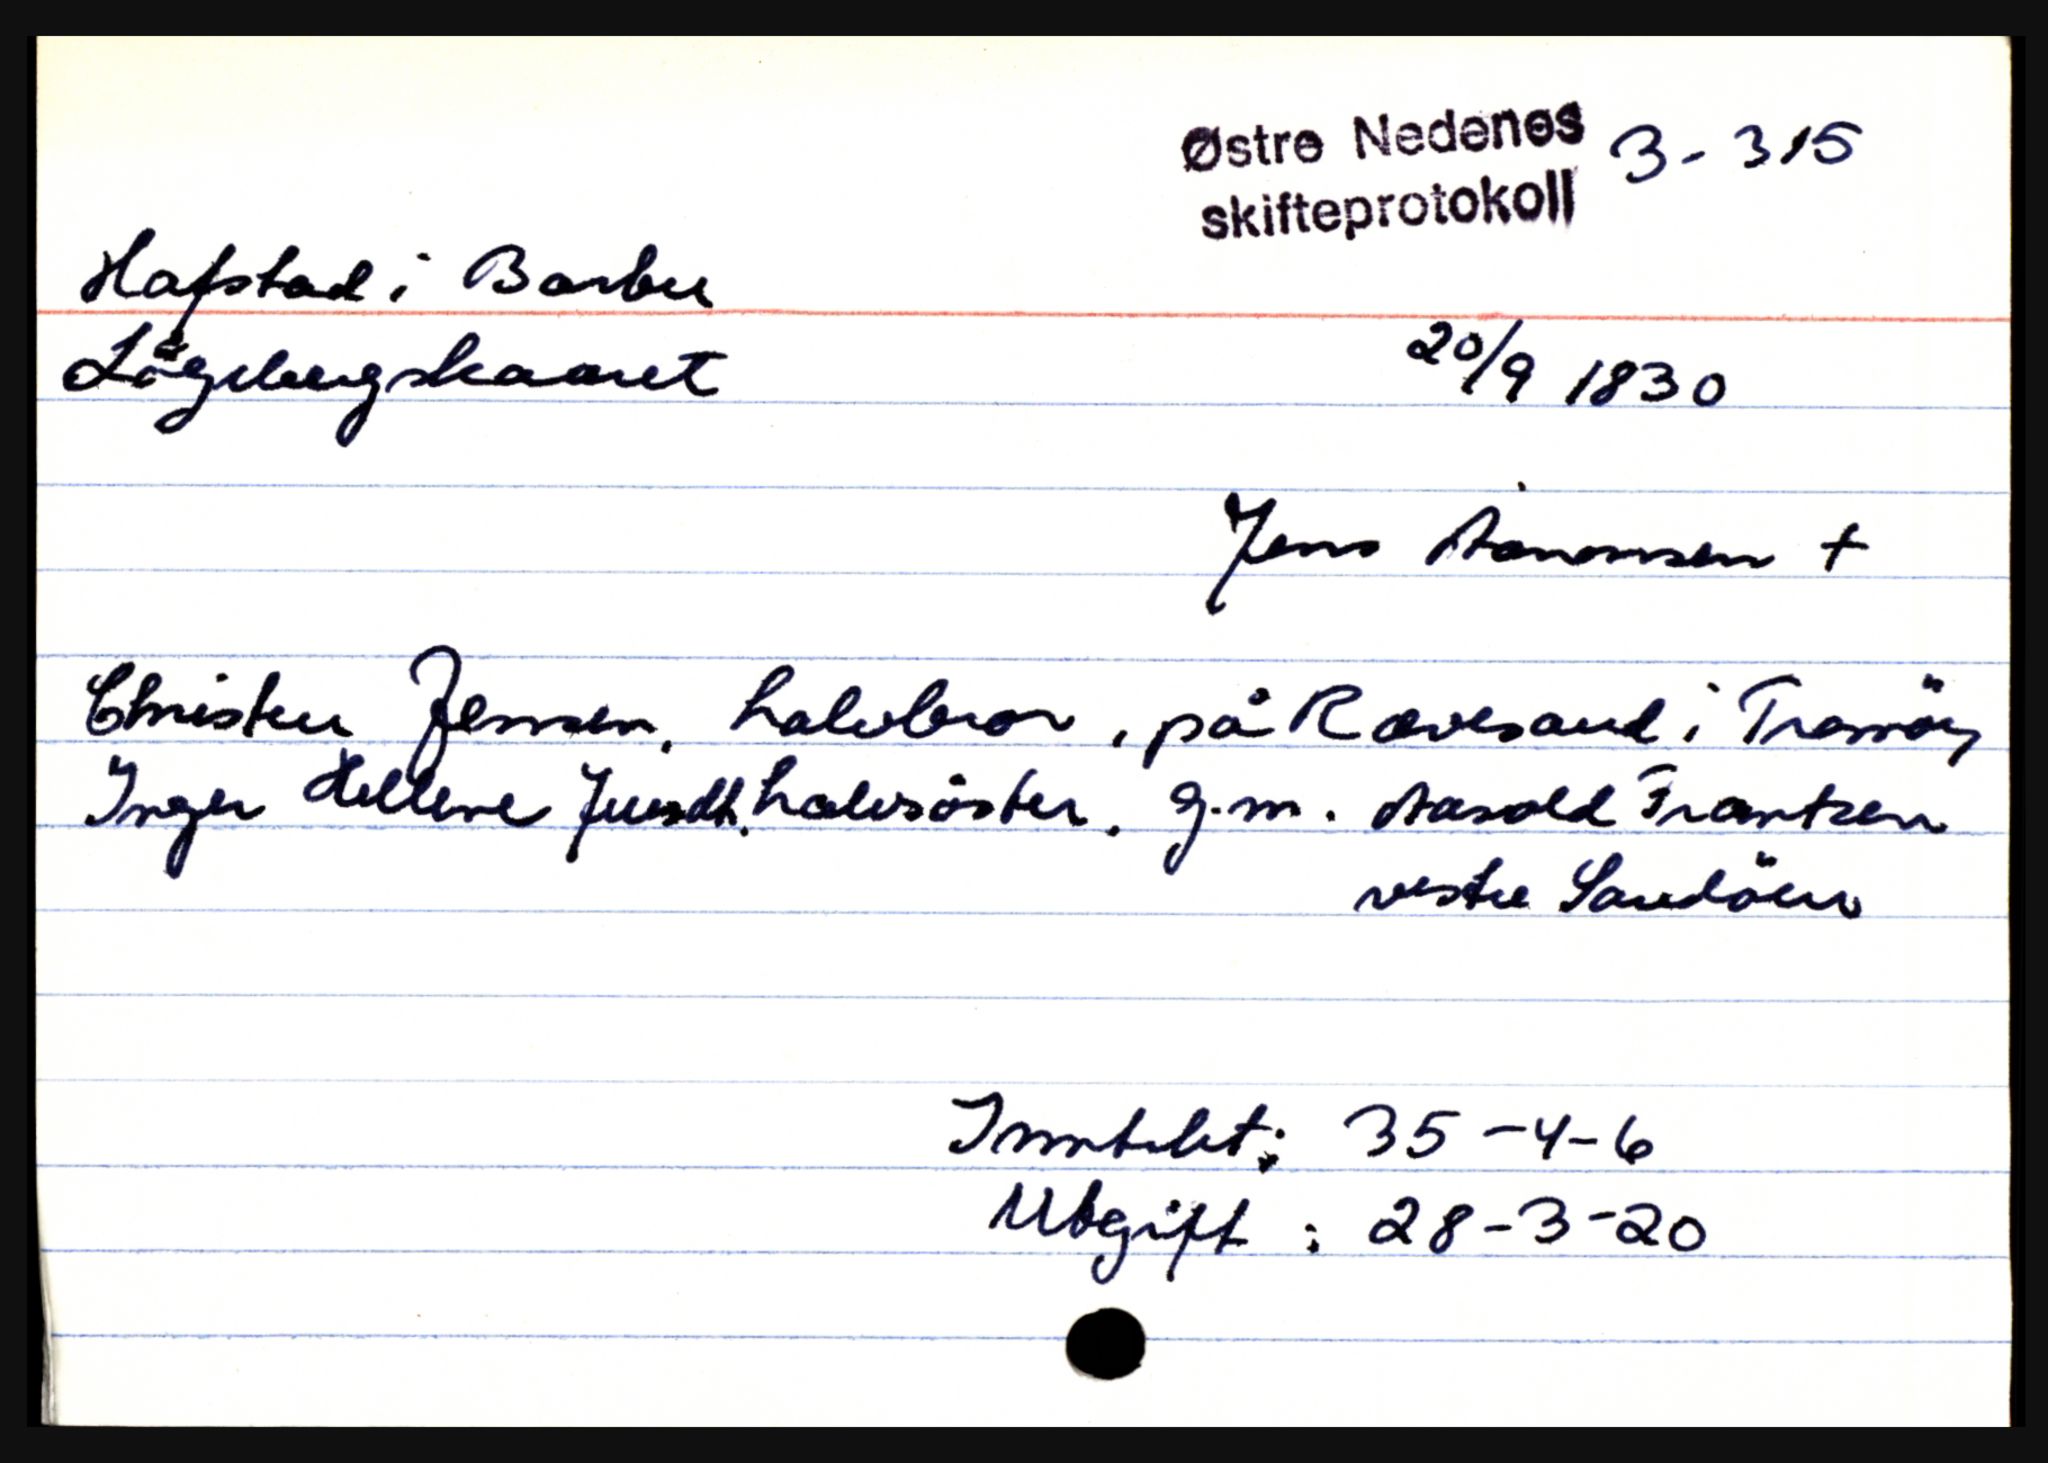 Østre Nedenes 3-315
skifteprotokoll
Hafstad i Barbu
Lögebergskaaret
20/9 1830
Jens Aanonsen +
Christen Jensen, halvbror, på Rævesand i Tromöy
Inger Hellene Jensdt. halvsöster, g.m. Aasold Frantzen
vestre Sandöen
Inntekt: 35-4-6
Utgift: 28-3-20